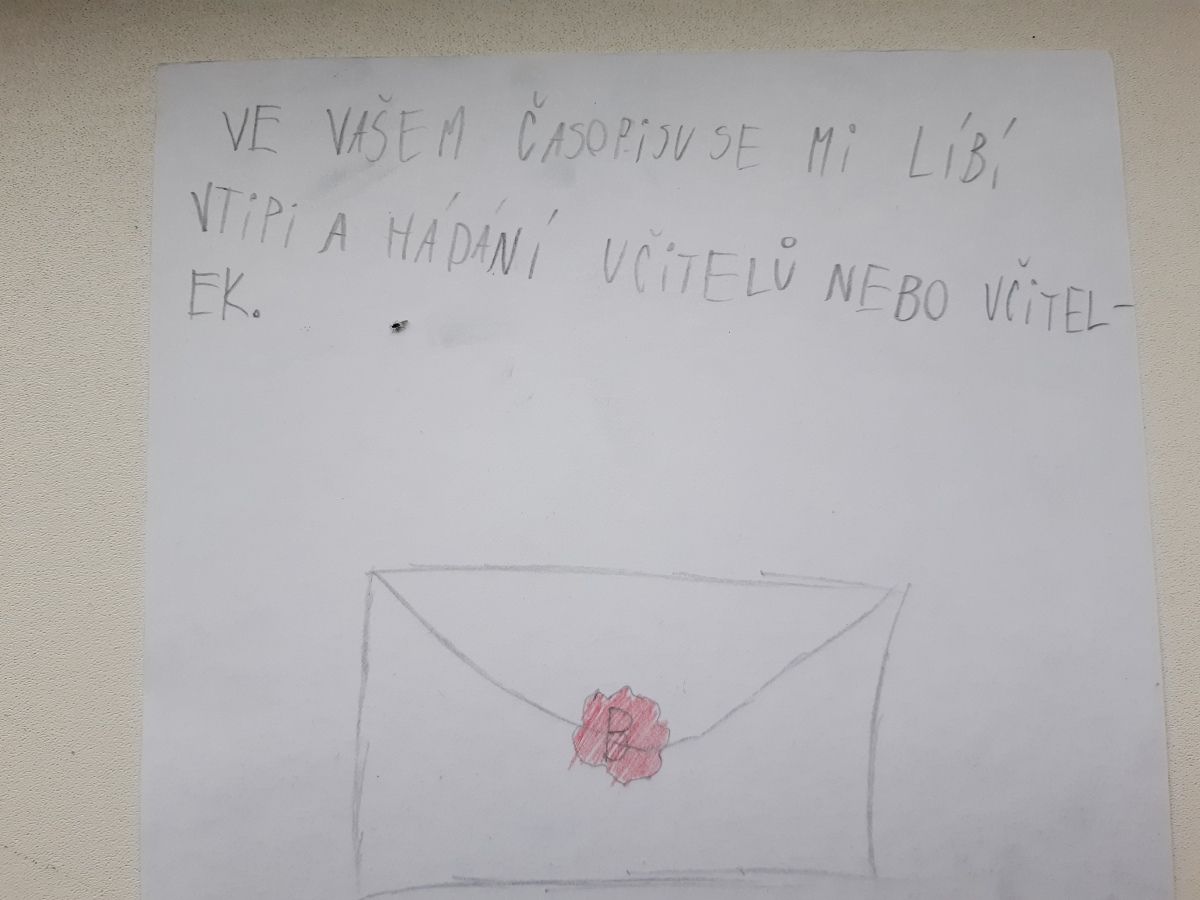 VE VAŠEM ČASOPiSU SE Mi LÍBÍ
VTiPi A HÁDÁNÍ UČiTELŮ NEBO UČiTEL-
EK.
B